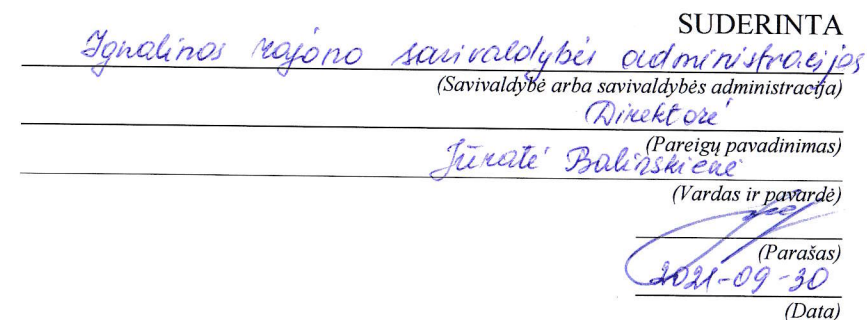 SUDERINTA
Ignalinos rajono savivaldybės administracijos
(Savivaldybė arba savivaldybės administracija)
Direktorė
(Pareigų pavadinimas)
Jūratė Balinskienė
(Vardas ir pavardė)
(Parašas)
2021-09-30
(Data)